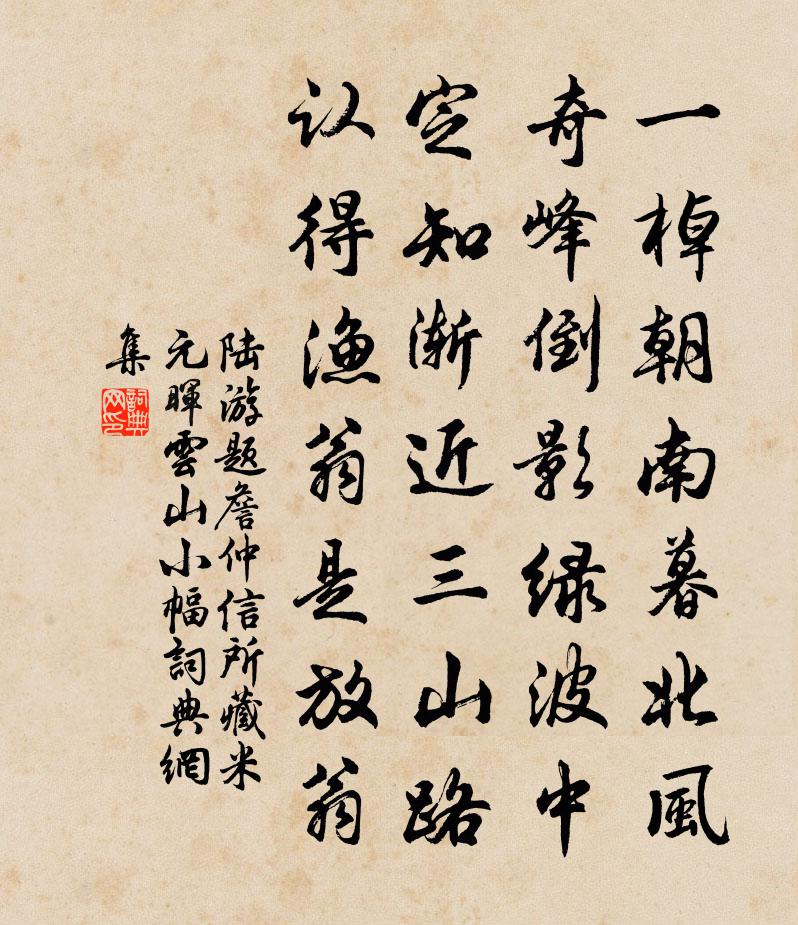 一棹朝南暮北風
奇峰倒影绿波中
定知渐近三山路
认得渔翁是放翁
陆游题詹仲信所藏米
元暉雲山小幅詞典網
集
詞典
网印